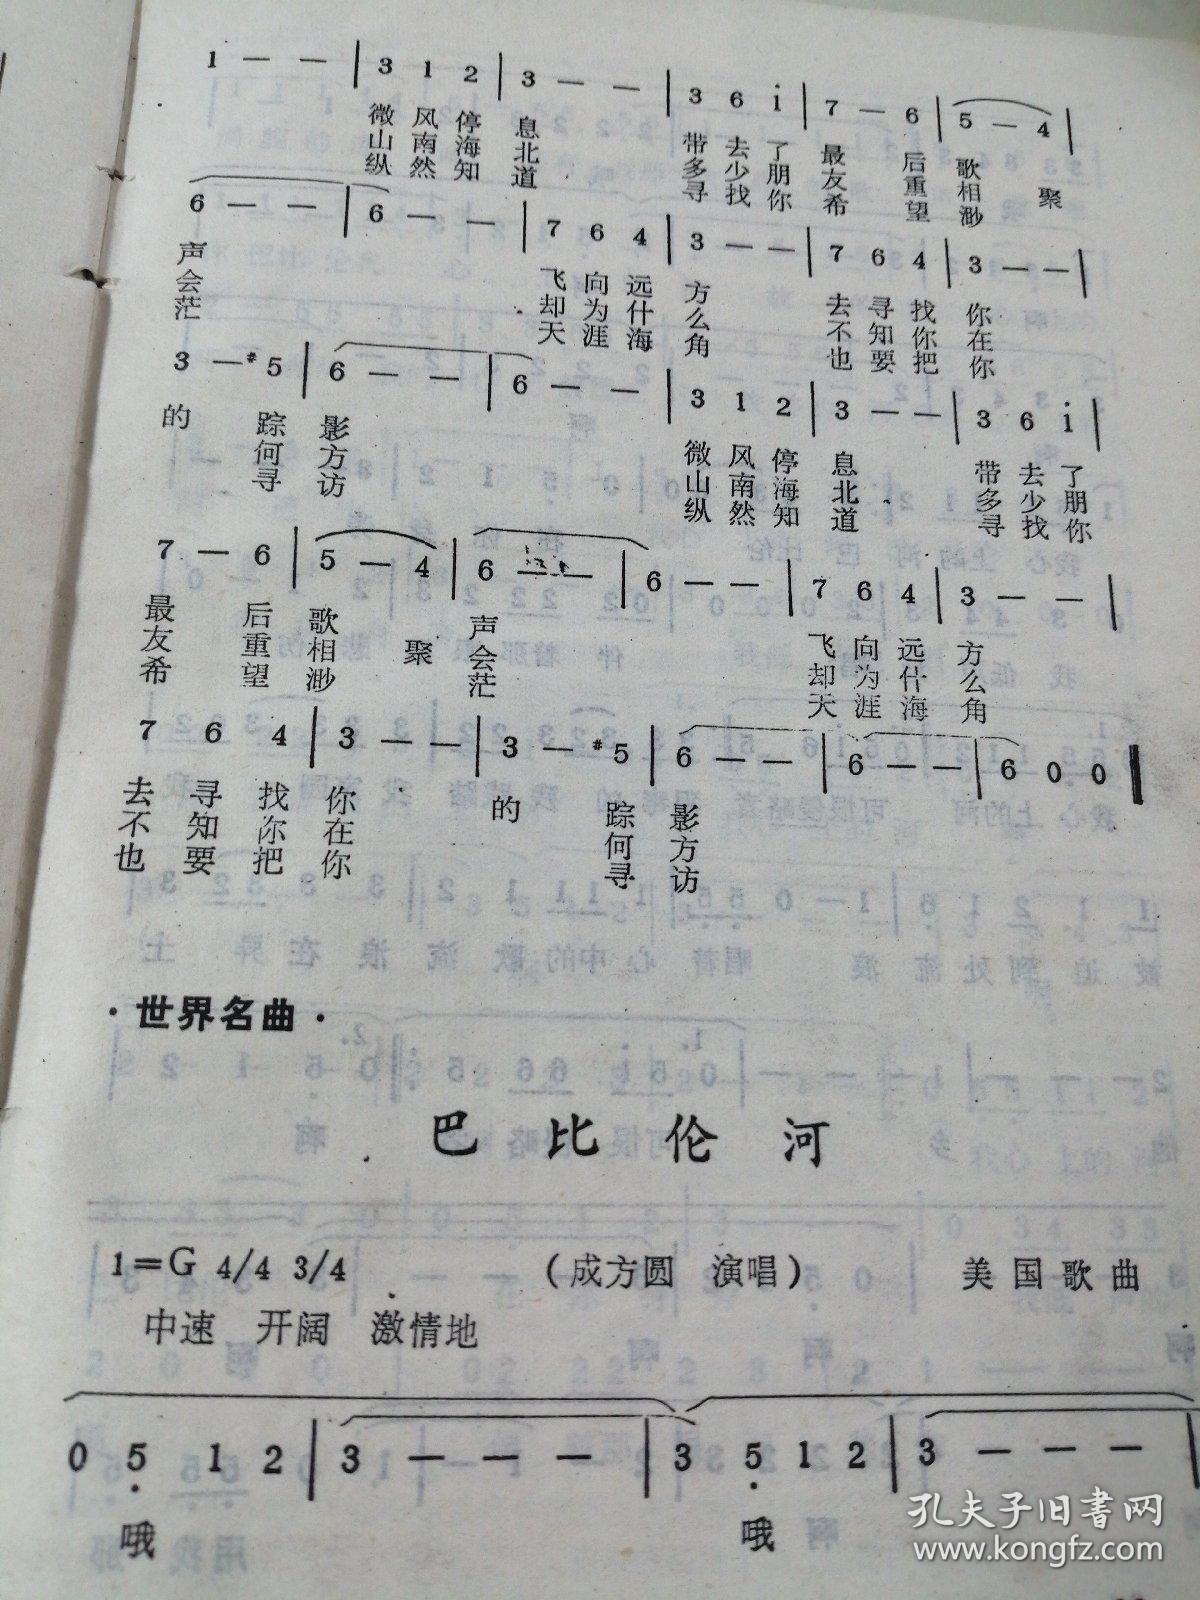 1 — — | 3 1 2 | 3 — — | 3 6 i̇ | 7 — 6 | 5 — 4 |
微 风 停 息 带 去 了 最 后 歌
山 南 海 北 多 少 朋 友 重 相 聚
纵 然 知 道 寻 找 你 希 望 渺
6 — — | 6 — — | 7 6 4 | 3 — — | 7 6 4 | 3 — — |
声 飞 向 远 方 去 寻 找 你
会 却 为 什 么 不 知 你 在
茫 天 涯 海 角 也 要 把 你
3 — #5 | 6 — — | 6 — — | 3 1 2 | 3 — — | 3 6 i̇ |
的 踪 影 微 风 停 息 带 去 了
何 方 山 南 海 北 多 少 朋
寻 访 纵 然 知 道 寻 找 你
7 — 6 | 5 — 4 | 6 — — | 6 — — | 7 6 4 | 3 — — |
最 后 歌 声 飞 向 远 方
友 重 相 聚 会 却 为 什 么
希 望 渺 茫 天 涯 海 角
7 6 4 | 3 — — | 3 — #5 | 6 — — | 6 — — | 6 0 0 ‖
去 寻 找 你 的 踪 影
不 知 你 在 何 方
也 要 把 你 寻 访
·世界名曲·
巴 比 伦 河
1=G 4/4 3/4 (成方圆 演唱) 美国歌曲
中速 开阔 激情地
0 5̣ 1 2 | 3 — — — | 3 5̣ 1 2 | 3 — — — |
哦 哦
孔夫子旧书网
www.kongfz.com